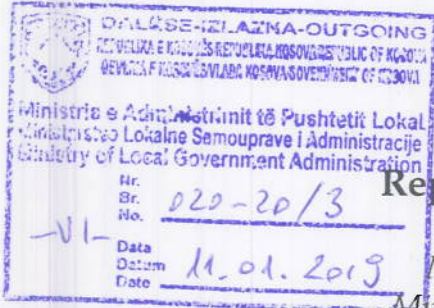 DALËSE-IZLAZNA-OUTGOING
REPUBLIKA E KOSOVËS-REPUBLIKA KOSOVA-REPUBLIC OF KOSOVA
QEVERIA E KOSOVËS/VLADA KOSOVA/GOVERNMENT OF KOSOVA
Ministria e Administrimit të Pushtetit Lokal
Ministarstvo Lokalne Samouprave i Administracije
Ministry of Local Government Administration
Nr.
Br. 020-20/3
No.
-VI-
Data
Datum 11.01.2019
Date
Rep